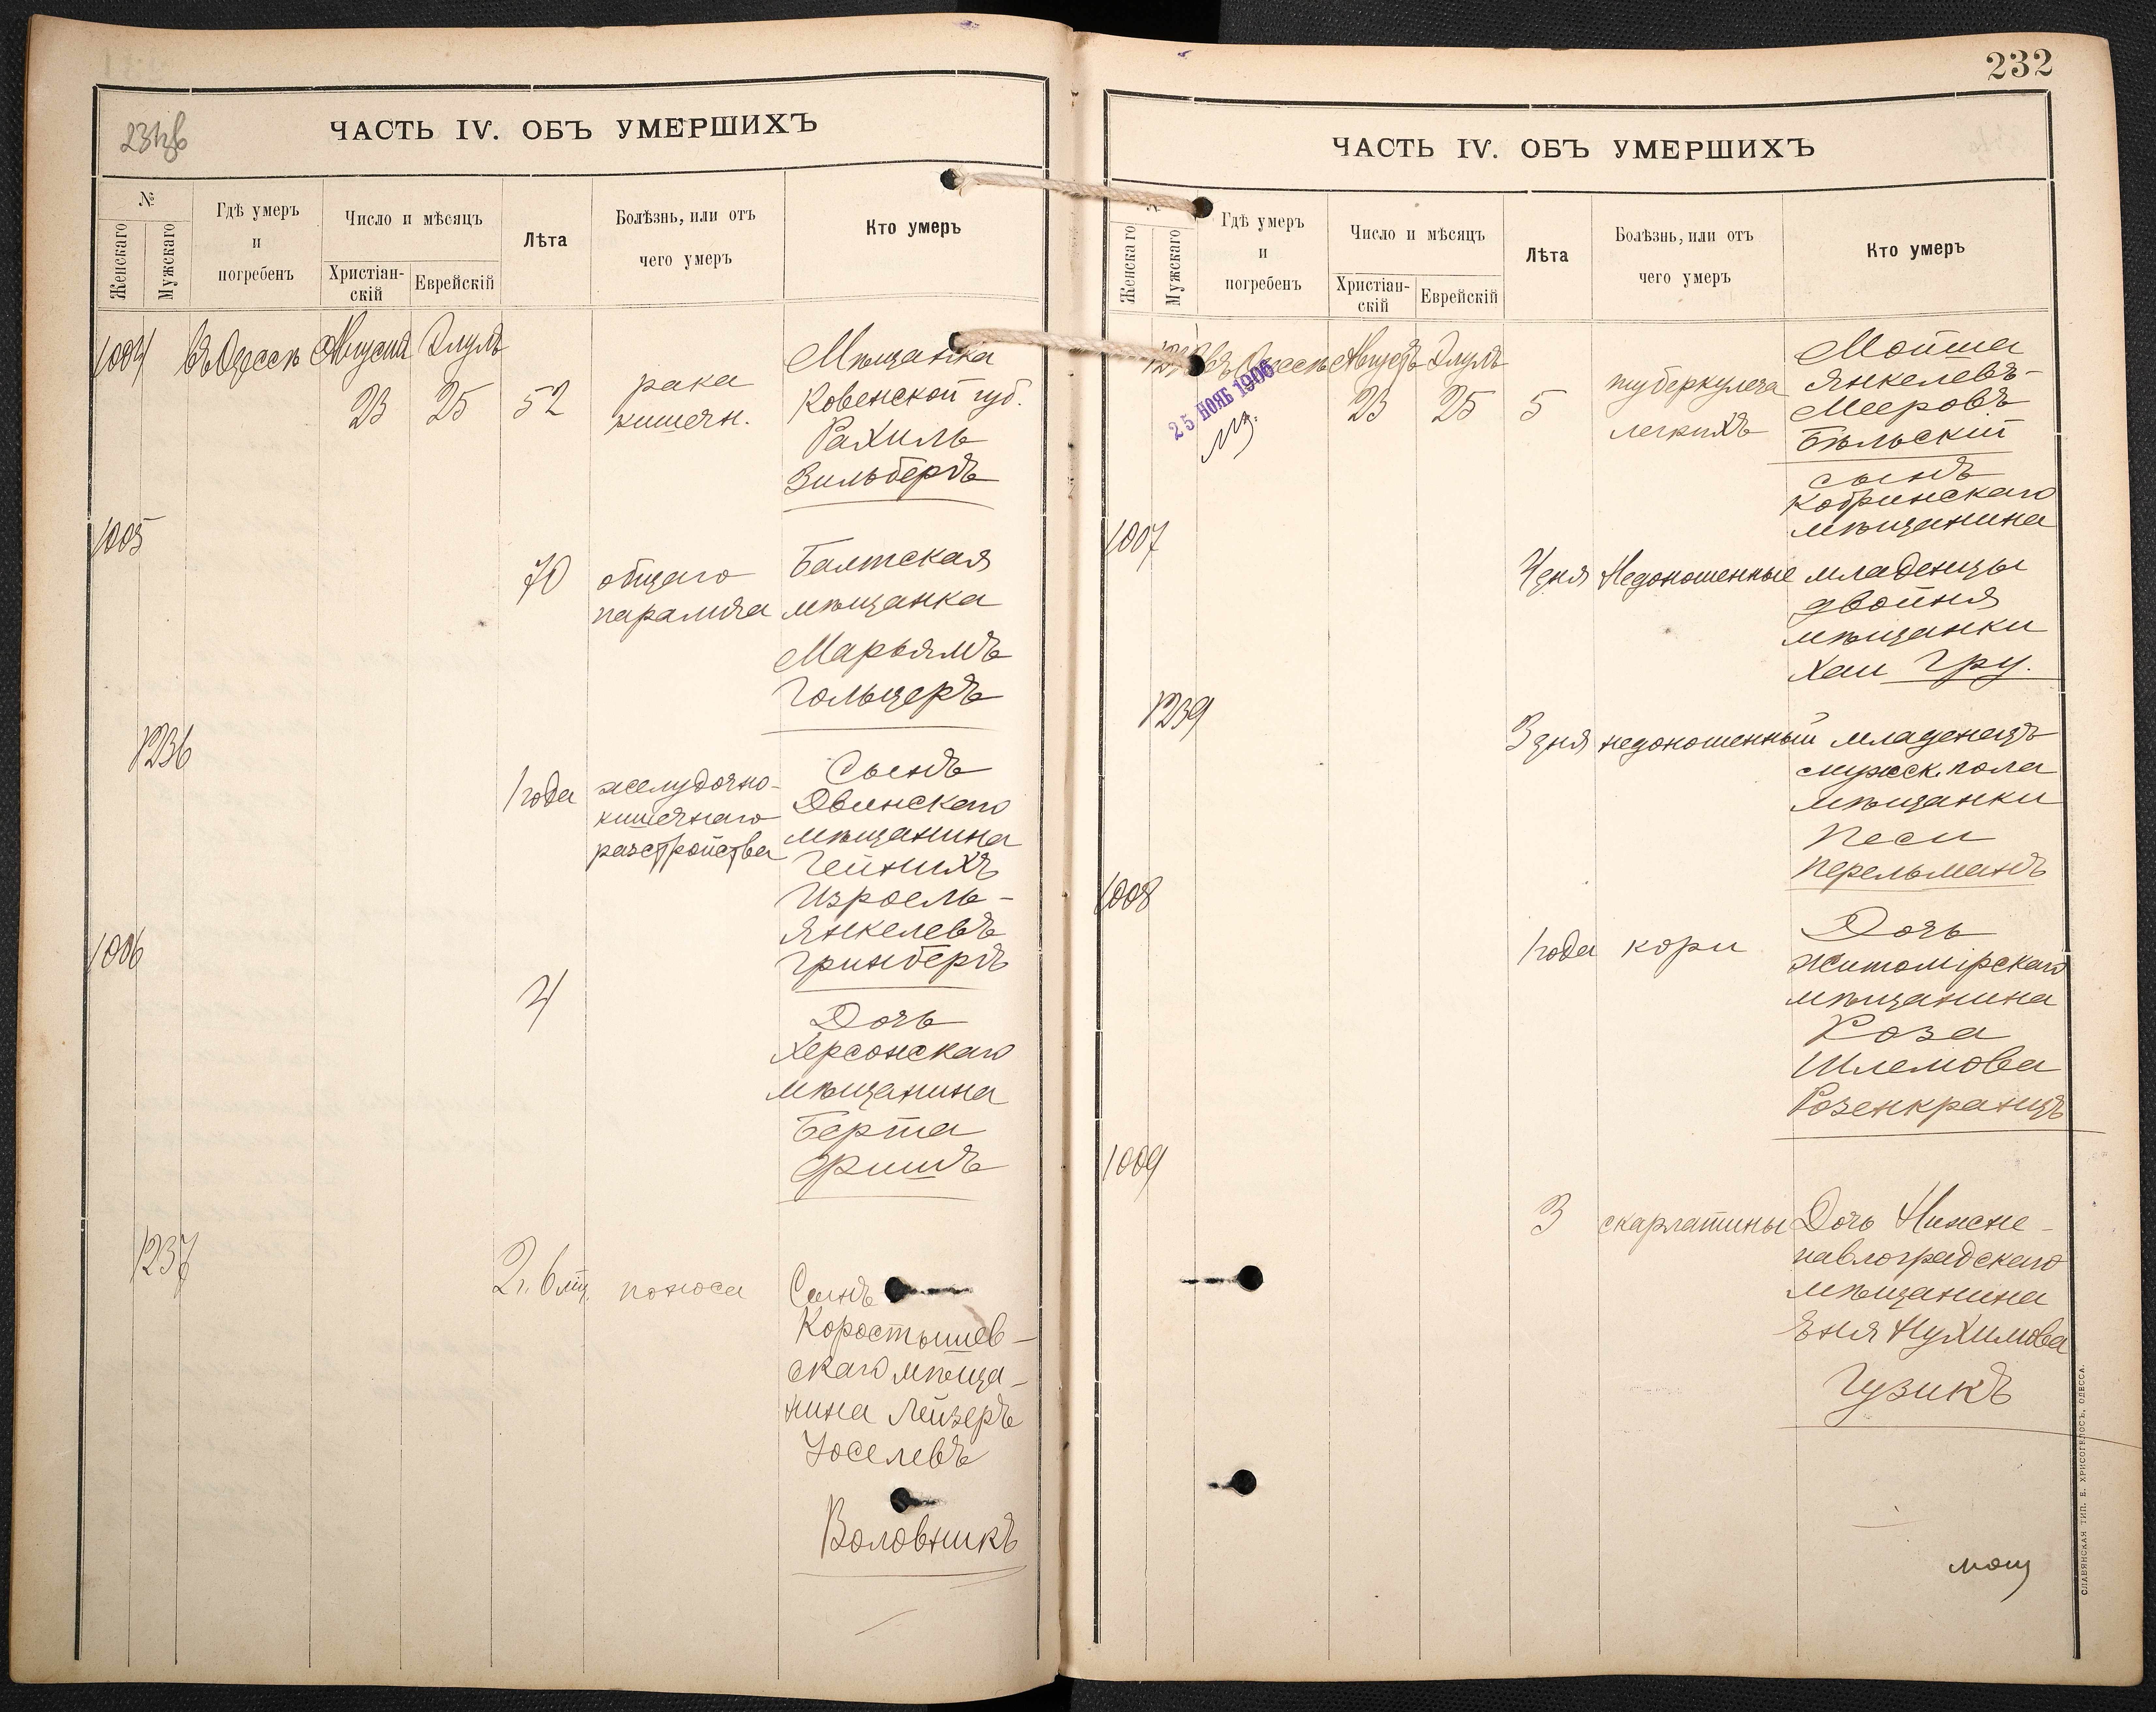 231об
ЧАСТЬ IV. ОБЪ УМЕРШИХЪ
№
Женскаго
Мужскаго
Гдѣ умеръ
и
погребенъ
Число и мѣсяцъ
Христіан-
скій
Еврейскій
Лѣта
Болѣзнь, или отъ
чего умеръ
Кто умеръ
1004 въ Одессѣ Августа Элулъ
23 25 52
рака
кишечн.
Мѣщанка
Ковенской губ.
Рахиль
Зильбергъ
1005
70
общаго
паралича
Балтская
мѣщанка
Марьямъ
Гольцеръ
1236
1 года
желудочно-
кишечнаго
разстройства
Сынъ
Двинскаго
мѣщанина
Гейнихъ
Израель-
Янкелевъ
Гринбергъ
1006
4
Дочь
Херсонскаго
мѣщанина
Берта
Фишъ
1237
2 г. 6 мц.
поноса
Сынъ
Коростышев-
скаго мѣща-
нина Лейзеръ
Іоселевъ
Воловникъ
232
ЧАСТЬ IV. ОБЪ УМЕРШИХЪ
Женскаго
Мужскаго
Гдѣ умеръ
и
погребенъ
Число и мѣсяцъ
Христіан-
скій
Еврейскій
Лѣта
Болѣзнь, или отъ
чего умеръ
Кто умеръ
въ Одессѣ Августъ Элулъ
25 НОЯБ 1906
23 25 5
туберкулеза
легкихъ
Мойша
Янкелевъ-
Мееровъ
Бѣльскій
сынъ
Кобринскаго
мѣщанина
1007
4 дня Недоношенные младенцы
двойня
мѣщанки
Хаи Гру.
1239
3 дня недоношенный младенецъ
мужск. пола
мѣщанки
Песи
Перельманъ
1008
1 года кори
Дочь
Житомірскаго
мѣщанина
Роза
Шлемова
Розенкранцъ
1009
3 скарлатины
Дочь Нижне-
павлоградскаго
мѣщанина
Эня Нухимова
Гузикъ
СЛАВЯНСКАЯ ТИП. Е. ХРИСОГЕЛОСЪ, ОДЕССА.